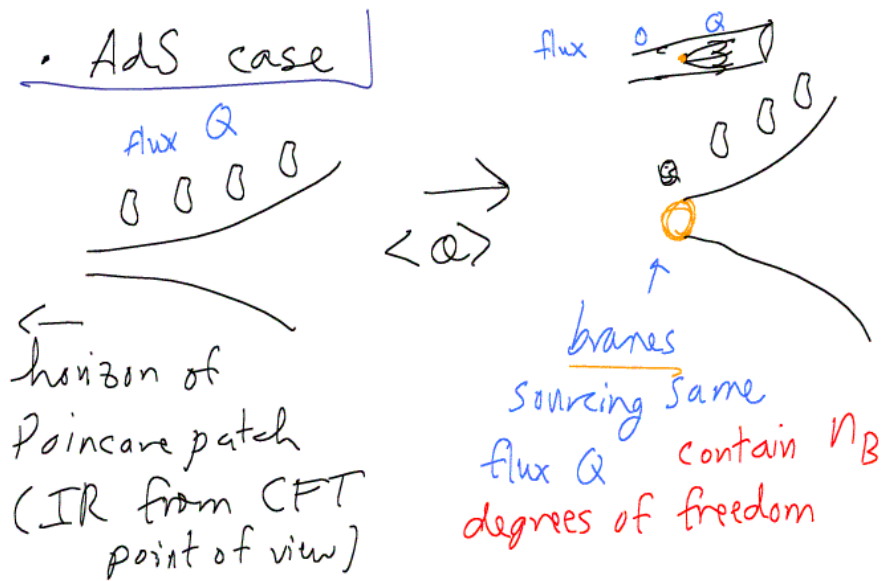 • AdS case
flux Q
<O>
horizon of
Poincare patch
(IR from CFT
point of view)
flux O Q
branes
sourcing same
flux Q contain n_B
degrees of freedom